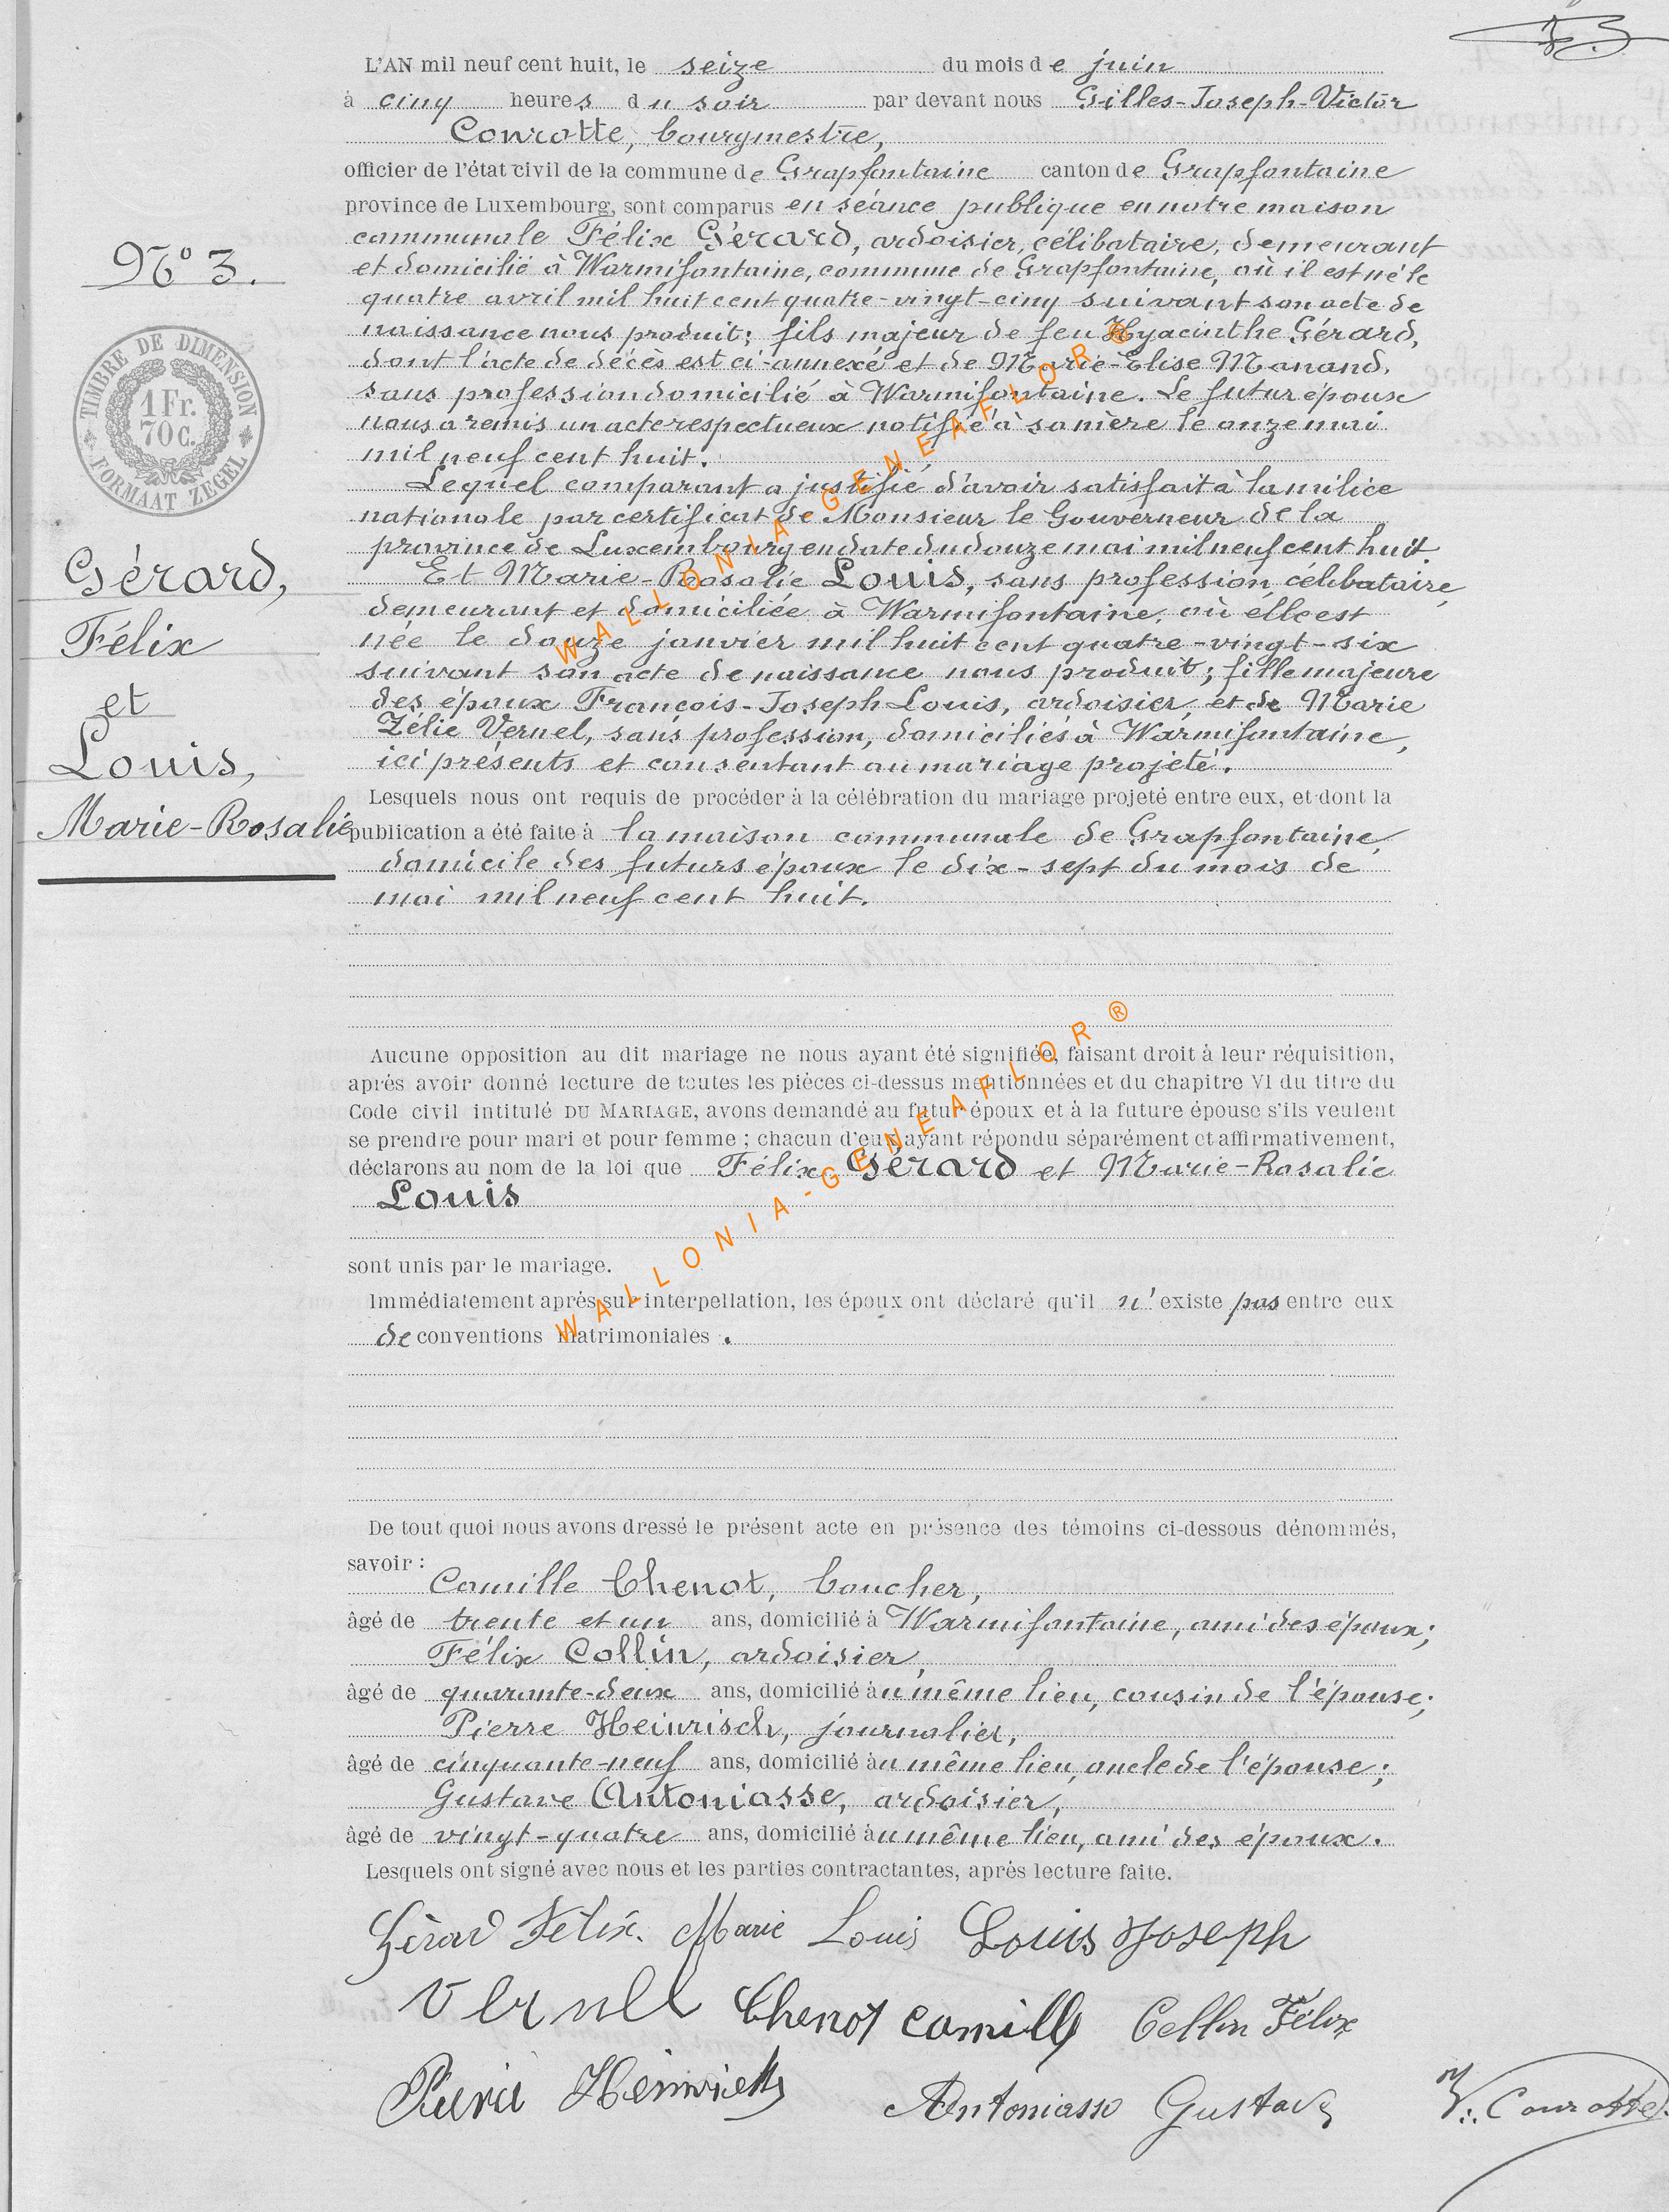 L'AN mil neuf cent huit, le seize du mois de juin
à cinq heures du soir par devant nous Gilles-Joseph-Victor
Conrotte, bourgmestre,
officier de l'état civil de la commune de Grapfontaine canton de Grapfontaine
province de Luxembourg, sont comparus en séance publique en notre maison
communale Félix Gérard, ardoisier, célibataire, demeurant
et domicilié à Warmifontaine, commune de Grapfontaine, où il est né le
quatre avril mil huit cent quatre-vingt-cinq suivant son acte de
naissance nous produit; fils majeur de feu Hyacinthe Gérard,
dont l'acte de décès est ci-annexé et de Marie-Elise Manand,
sans profession domicilié à Warmifontaine. Le futur époux
nous a remis un acte respectueux notifié à sa mère le onze mai
mil neuf cent huit.
Lequel comparant a justifié d'avoir satisfait à la milice
nationale par certificat de Monsieur le Gouverneur de la
province de Luxembourg en date du douze mai mil neuf cent huit
Et Marie-Rosalie Louis, sans profession, célibataire,
demeurant et domiciliée à Warmifontaine, où elle est
née le douze janvier mil huit cent quatre-vingt-six
suivant son acte de naissance nous produit; fille majeure
des époux François-Joseph Louis, ardoisier, et de Marie
Zélie Vernel, sans profession, domiciliés à Warmifontaine,
ici présents et consentant au mariage projeté.
Lesquels nous ont requis de procéder à la célébration du mariage projeté entre eux, et dont la
publication a été faite à la maison communale de Grapfontaine,
domicile des futurs époux le dix-sept du mois de
mai mil neuf cent huit.
N° 3.
TIMBRE DE DIMENSION
1 Fr.
70 C.
FORMAAT ZEGEL
Gérard,
Félix
et
Louis,
Marie-Rosalie
Aucune opposition au dit mariage ne nous ayant été signifiée, faisant droit à leur réquisition,
après avoir donné lecture de toutes les pièces ci-dessus mentionnées et du chapitre VI du titre du
Code civil intitulé DU MARIAGE, avons demandé au futur époux et à la future épouse s'ils veulent
se prendre pour mari et pour femme ; chacun d'eux ayant répondu séparément et affirmativement,
déclarons au nom de la loi que Félix Gérard et Marie-Rosalie
Louis
sont unis par le mariage.
Immédiatement après sur interpellation, les époux ont déclaré qu'il n'existe pas entre eux
de conventions matrimoniales.
De tout quoi nous avons dressé le présent acte en présence des témoins ci-dessous dénommés,
savoir :
Camille Chenot, boucher,
âgé de trente et un ans, domicilié à Warmifontaine, ami des époux;
Félix Collin, ardoisier,
âgé de quarante-deux ans, domicilié au même lieu, cousin de l'épouse;
Pierre Heinrisch, journalier,
âgé de cinquante-neuf ans, domicilié au même lieu, oncle de l'épouse;
Gustave Antoniasse, ardoisier,
âgé de vingt-quatre ans, domicilié au même lieu, ami des époux.
Lesquels ont signé avec nous et les parties contractantes, après lecture faite.
Gérard Félix. Marie Louis Louis Joseph
Vernel Chenot Camille Collin Félix
Antoniasse Gustave
V. Conrotte
WALLONIA-GENEAFLOR ®
WALLONIA-GENEAFLOR ®